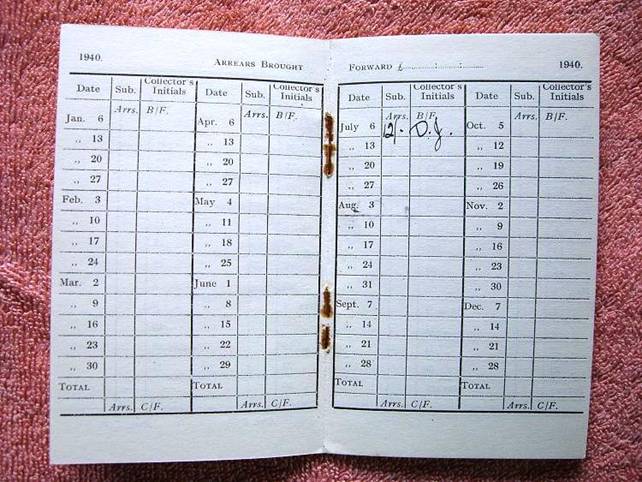 1940. ARREARS BROUGHT
Date Sub. Collector's Initials Date Sub. Collector's Initials
Arrs. B/F. Arrs. B/F.
Jan. 6 Apr. 6
„ 13 „ 13
„ 20 „ 20
„ 27 „ 27
Feb. 3 May 4
„ 10 „ 11
„ 17 „ 18
„ 24 „ 25
Mar. 2 June 1
„ 9 „ 8
„ 16 „ 15
„ 23 „ 22
„ 30 „ 29
TOTAL TOTAL
Arrs. C/F. Arrs. C/F.
FORWARD £ : : 1940.
Date Sub. Collector's Initials Date Sub. Collector's Initials
Arrs. B/F. Arrs. B/F.
July 6 12/- D.J. Oct. 5
„ 13 „ 12
„ 20 „ 19
„ 27 „ 26
Aug. 3 Nov. 2
„ 10 „ 9
„ 17 „ 16
„ 24 „ 23
„ 31 „ 30
Sept. 7 Dec. 7
„ 14 „ 14
„ 21 „ 21
„ 28 „ 28
TOTAL TOTAL
Arrs. C/F. Arrs. C/F.